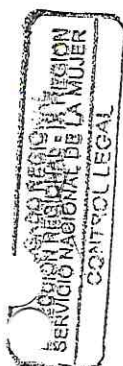 DIRECCIÓN REGIONAL - IX REGION
SERVICIO NACIONAL DE LA MUJER
CONTROL LEGAL